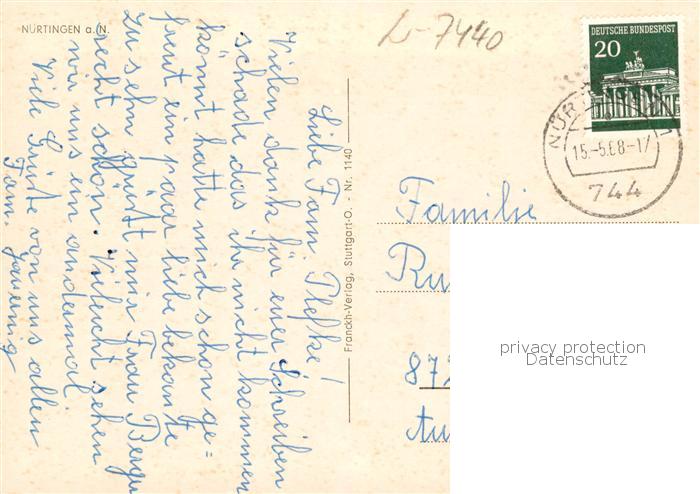 NÜRTINGEN a./N.
L-7440
Liebe Fam. Plefke!
Vielen dank für euer Schreiben
schade das ihr nicht kommen
könnt hatte mich schon ge=
freut ein paar liebe bekante
zu sehn grüßt mir Frau Berger
recht schön. Vieleicht sehen
wir uns ein andermal
Viele Grüße von uns allen
Fam.
Franckh-Verlag, Stuttgart-O. - Nr. 1140
DEUTSCHE BUNDESPOST
20
NÜR
15.-5.68-17
744
Familie
Ru
872
Au
privacy protection
Datenschutz